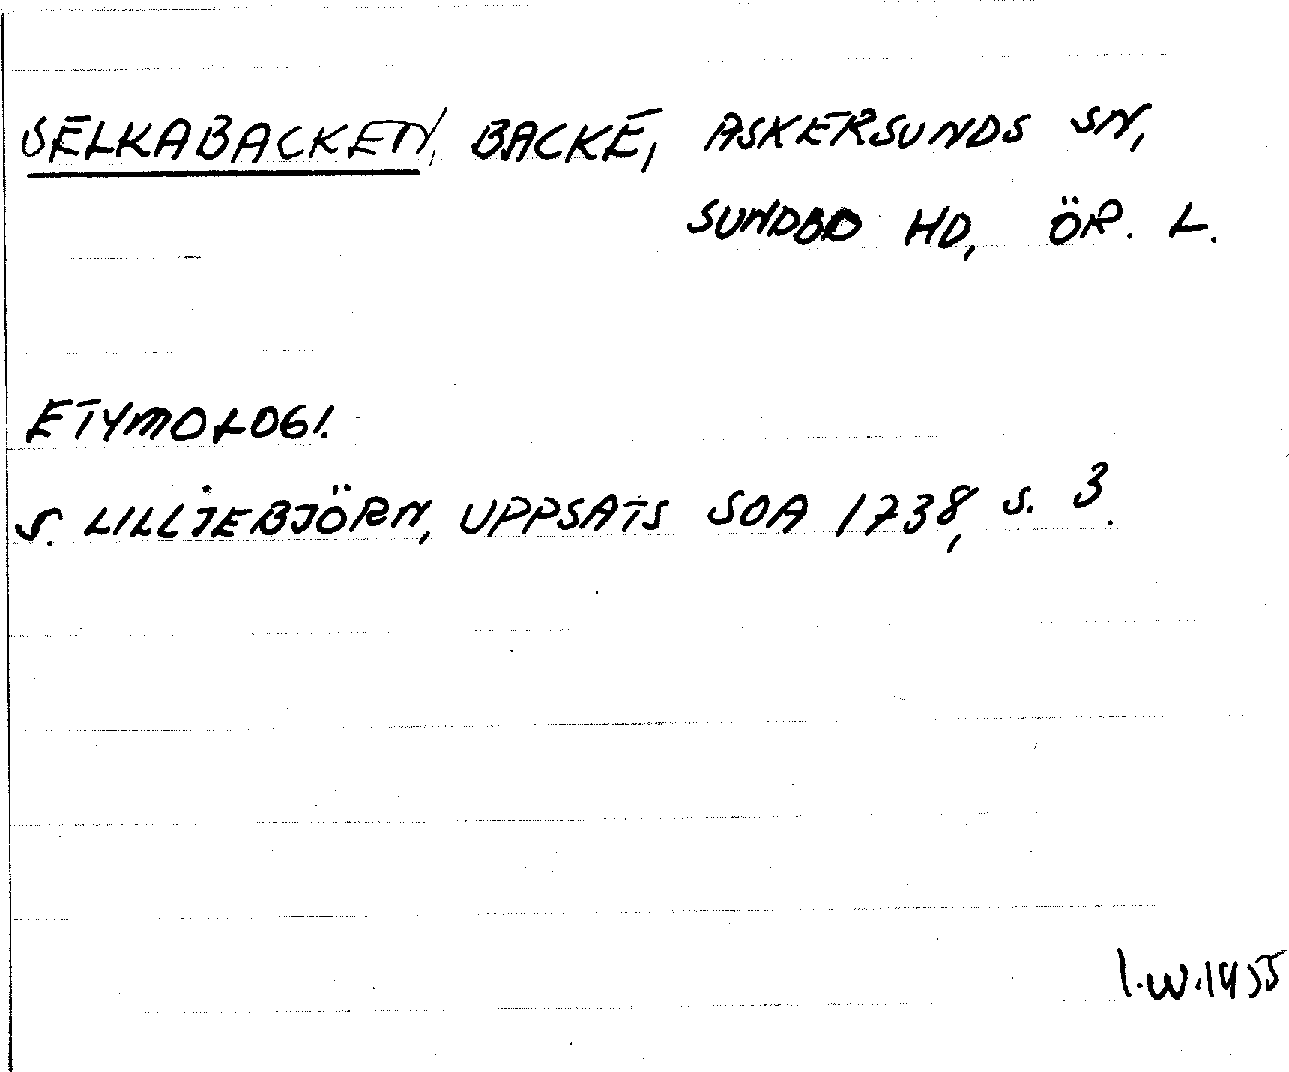 SELKABACKEN, BACKE, ASKERSUNDS SN,
SUNDBO HD, ÖR. L.
ETYMOLOGI.
S. LILLIEBJÖRN, UPPSATS SOA 1738, S. 3.
I.W.1955